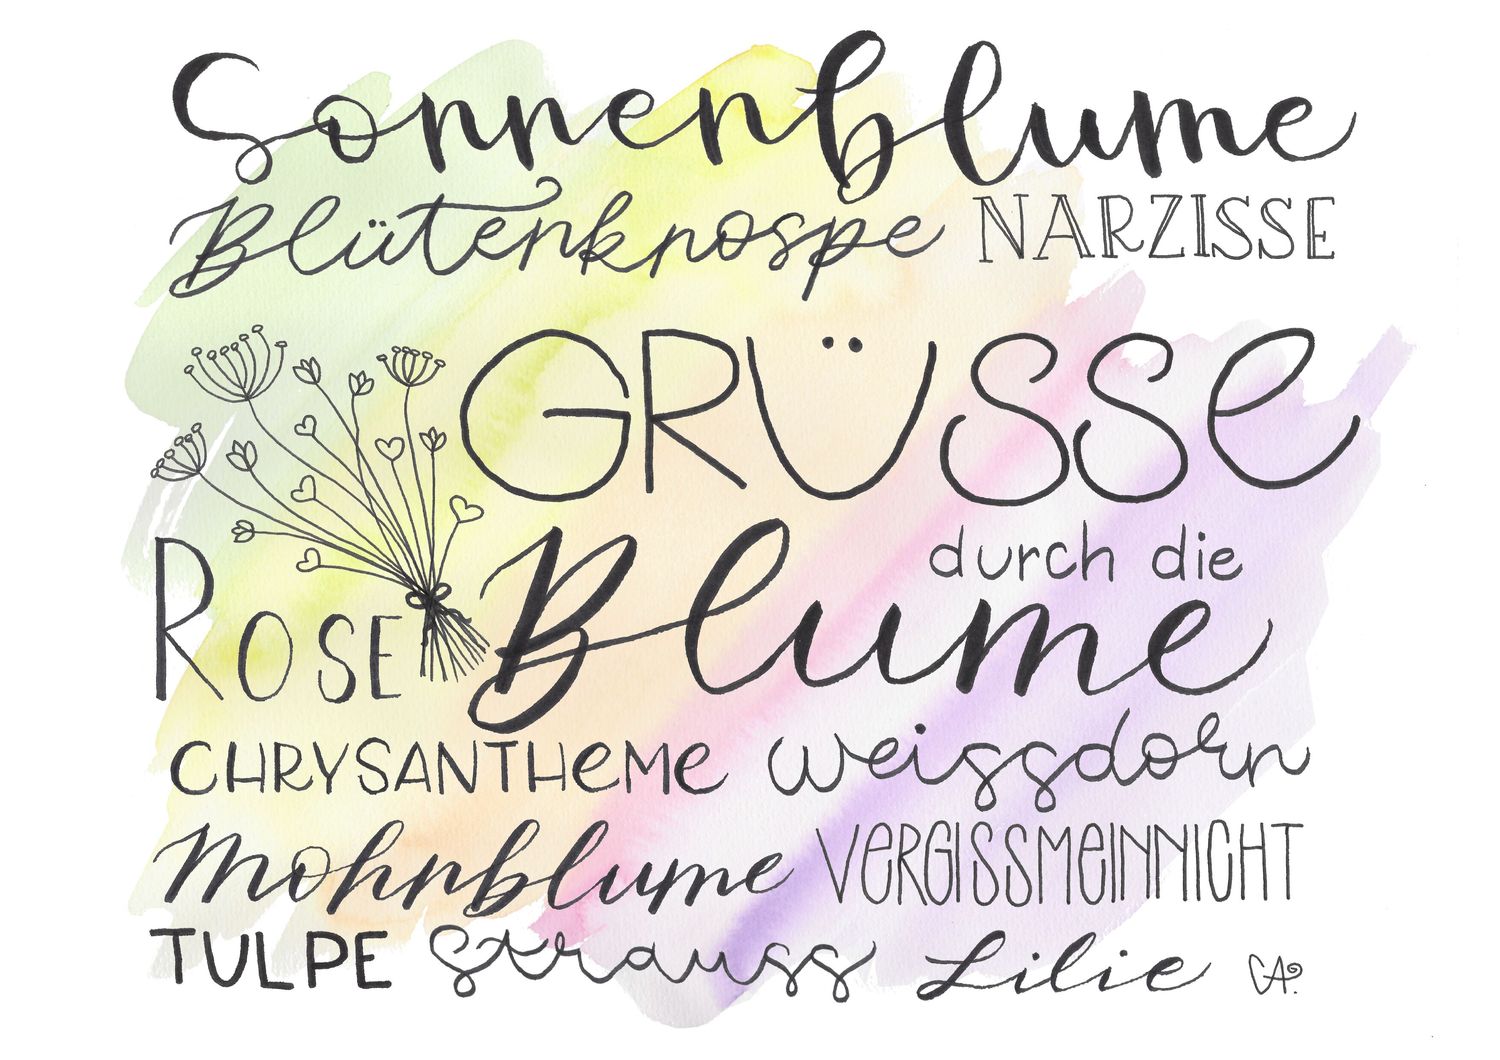 Sonnenblume
Blütenknospe NARZISSE
GRÜSSe
durch die
ROSE Blume
CHRYSANTHeMe weissdorn
Mohnblume VeRGISSMeINNICHT
TULPE Strauss Lilie CA.